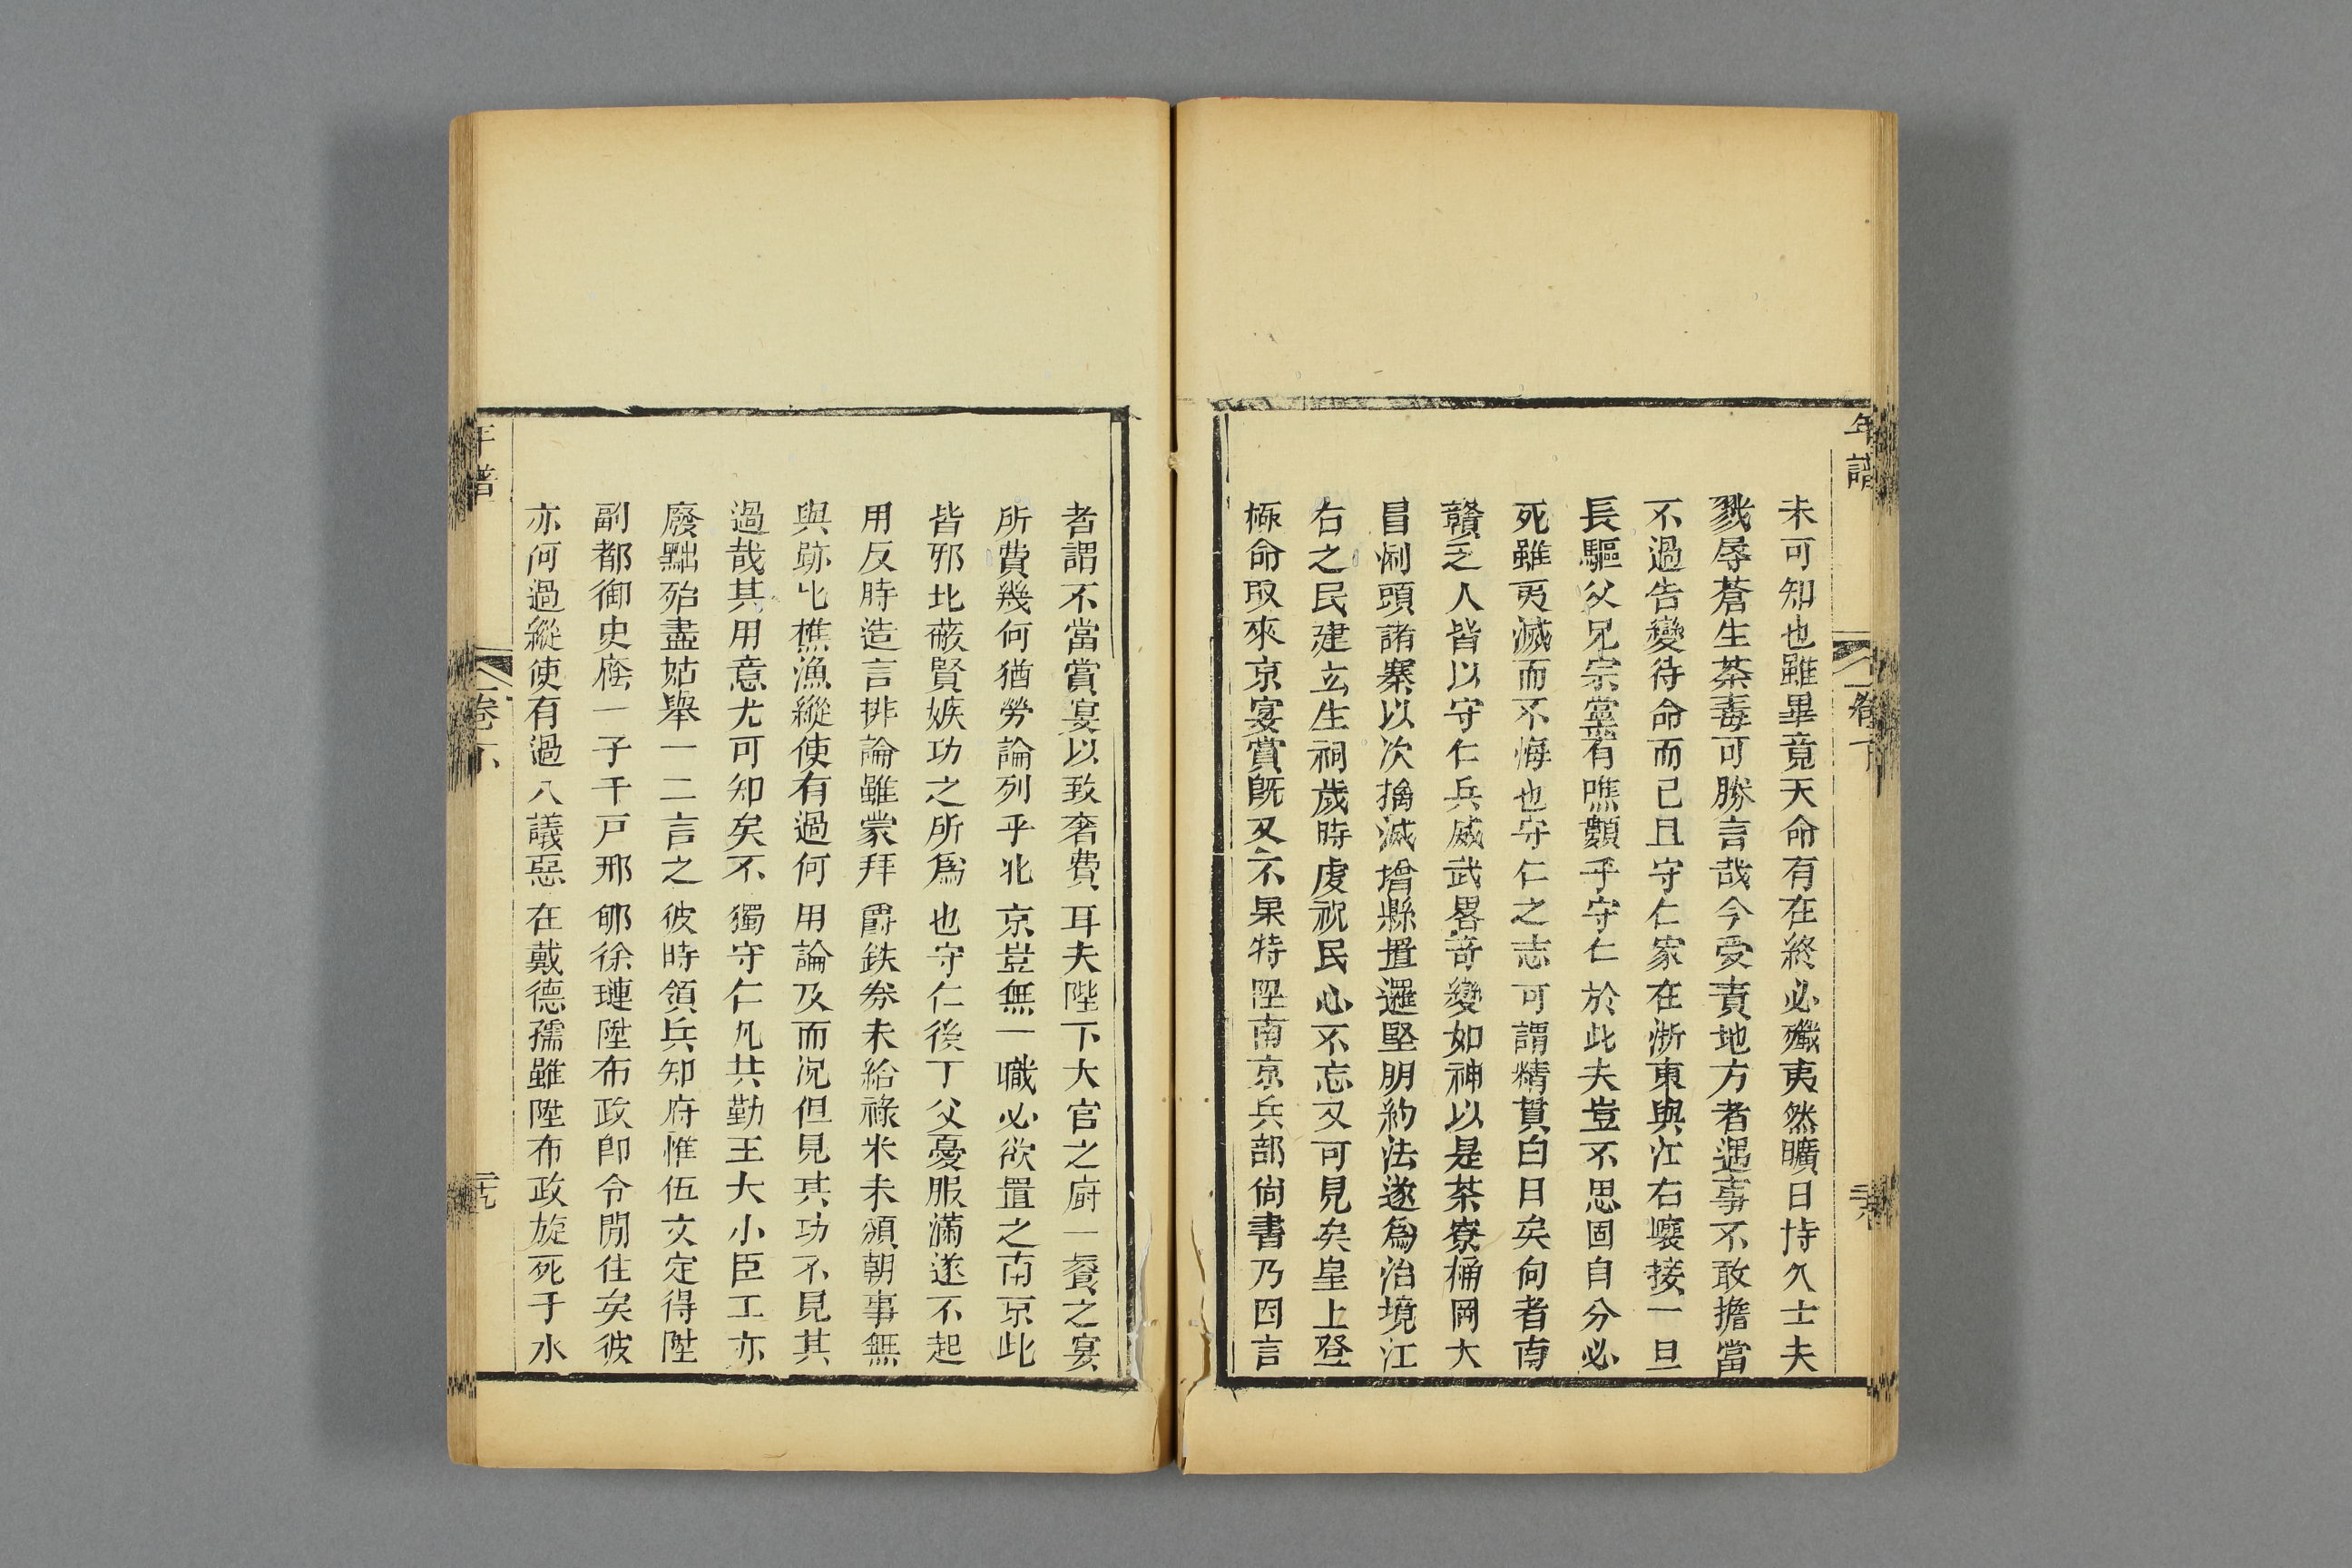 年譜
卷下
未可知也雖畢竟天命有在終必殲夷然曠日持久士夫
戮辱蒼生荼毒可勝言哉今受責地方者遇事不敢擔當
不過告變待命而已且守仁家在浙東與江右壤接一旦
長驅父兄宗黨有噍類乎守仁於此夫豈不思固自分必
死雖夷滅而不悔也守仁之志可謂精貫白日矣向者南
贛之人皆以守仁兵威武畧奇變如神以是茶寮桶岡大
冒浰頭諸寨以次擒滅增縣置邏堅明約法遂爲治境江
右之民建立生祠歲時虔祝民心不忘又可見矣皇上登
極命取來京宴賞旣又不果特陞南京兵部尙書乃因言
者謂不當賞宴以致奢費耳夫陛下大官之廚一餐之宴
所費幾何猶勞論列乎北京豈無一職必欲置之南京此
皆邪比蔽賢嫉功之所爲也守仁後丁父憂服滿遂不起
用反時造言排論雖蒙拜爵鉄劵未給祿米未頒朝事無
與跡比樵漁縱使有過何用論及而況但見其功不見其
過哉其用意尤可知矣不獨守仁凡共勤王大小臣工亦
廢黜殆盡姑舉一二言之彼時領兵知府惟伍文定得陞
副都御史廕一子千戸邢郇徐璉陞布政卽令閒住矣彼
亦何過縱使有過八議惡在戴德孺雖陞布政旋死于水
年譜
卷下